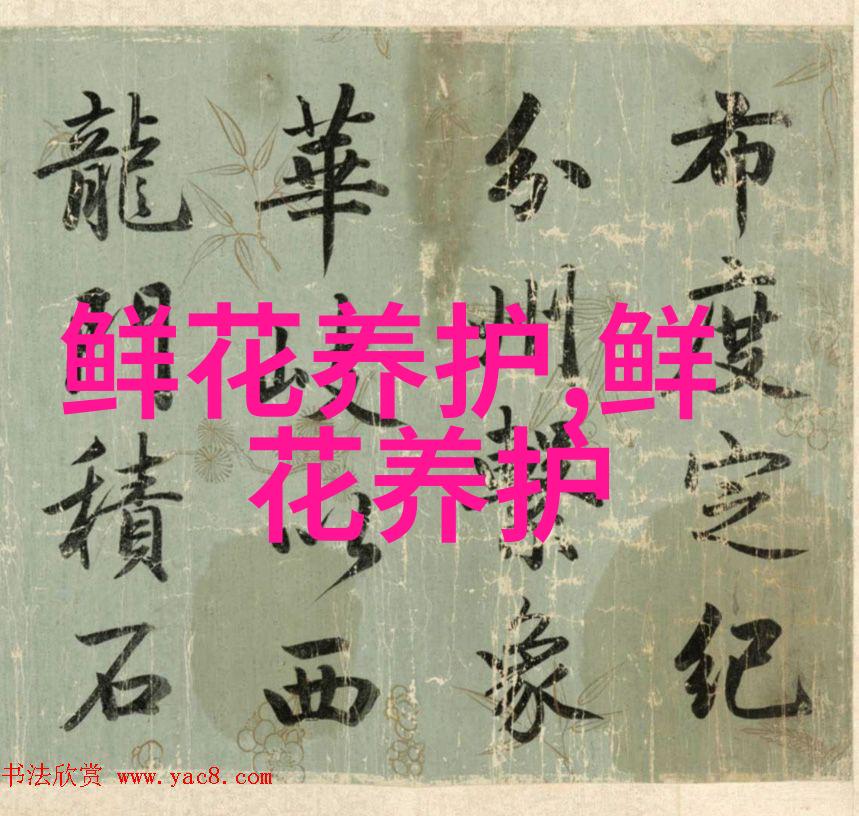 布度定紀
分州繫象
華岐以西
龍門積石
鲜花养护,鲜
花养护
书法欣赏 www.yac8.com